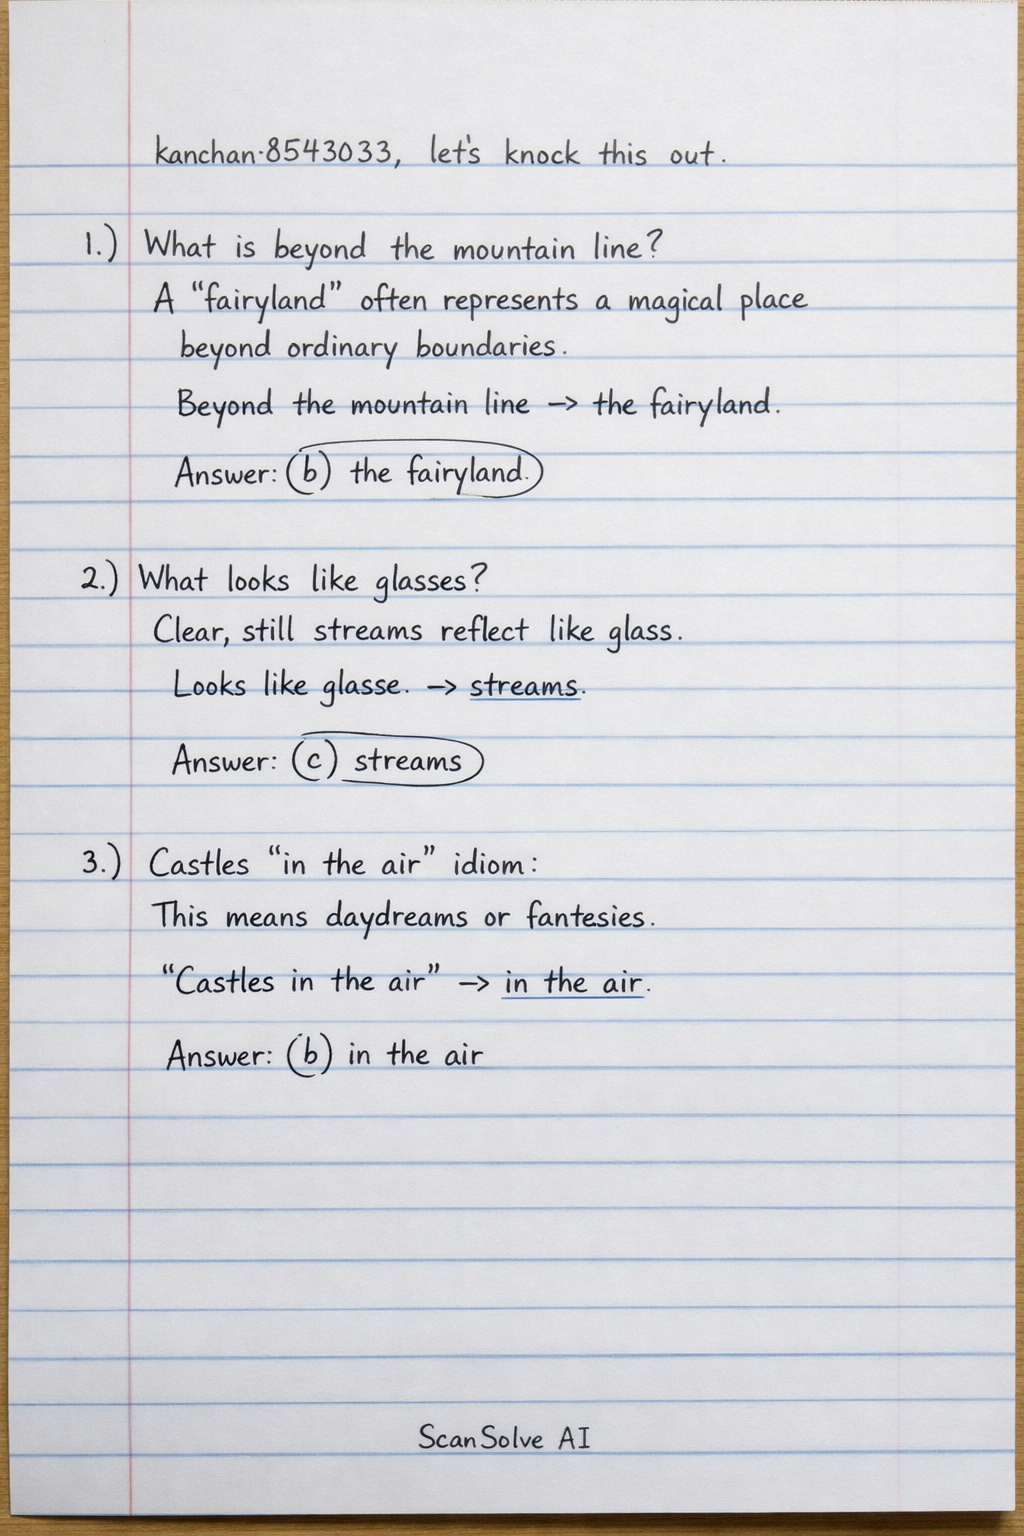 kanchan·8543033, let's knock this out.
1.) What is beyond the mountain line?
A “fairyland” often represents a magical place
beyond ordinary boundaries.
Beyond the mountain line -> the fairyland.
Answer: (b) the fairyland.
2.) What looks like glasses?
Clear, still streams reflect like glass.
Looks like glasse. -> streams.
Answer: (c) streams
3.) Castles “in the air” idiom:
This means daydreams or fantesies.
“Castles in the air” -> in the air.
Answer: (b) in the air
ScanSolve AI